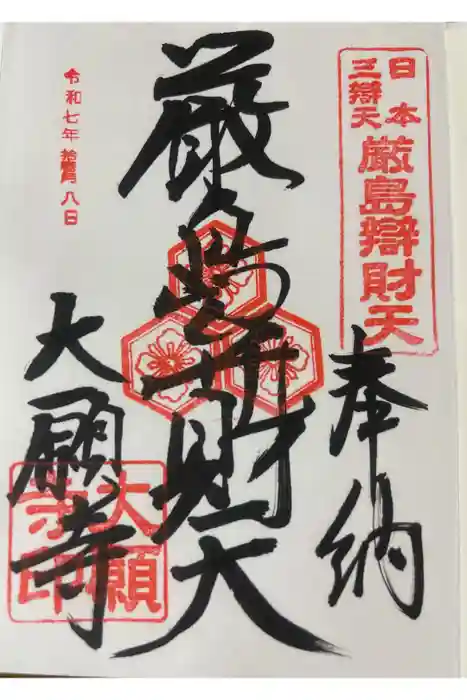 日本
三辯天
厳島辯財天
奉納
厳島弁財天
大願寺
大願
寺印
令和七年拾壱月八日